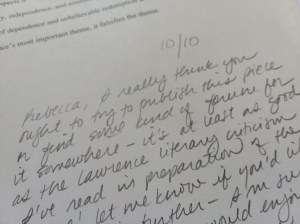 ty, independence, and
of dependence and unbelievable redemption
her's most important theme, it falsifies the theme.
10/10
Rebecca, I really think you
ought to try to publish this piece
or find some kind of forum for
it somewhere - it's at least as good
as the Lawrence literary criticism
I've read in preparation of the
let me know if you'd
further - I'm su
would enjoy